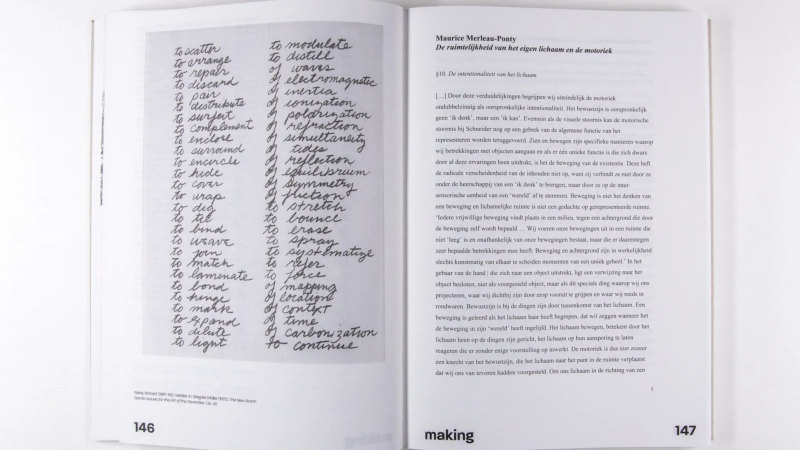 to scatter
to arrange
to repair
to discard
to pair
to distribute
to surfeit
to complement
to enclose
to surround
to encircle
to hide
to cover
to wrap
to dig
to tie
to bind
to weave
to join
to match
to laminate
to bond
to hinge
to mark
to expand
to dilute
to light
to modulate
to distill
of waves
of electromagnetic
of inertia
of ionization
of polarization
of refraction
of simultaneity
of tides
of reflection
of equilibrium
of symmetry
of friction
to stretch
to bounce
to erase
to spray
to systematize
to refer
to force
of mapping
of location
of context
of time
of carbonization
to continue
146
Maurice Merleau-Ponty
De ruimtelijkheid van het eigen lichaam en de motoriek
§10. De intentionaliteit van het lichaam
[…] Door deze verduidelijkingen begrijpen wij uiteindelijk de motoriek
ondubbelzinnig als oorspronkelijke intentionaliteit. Het bewustzijn is oorspronkelijk
geen 'ik denk', maar een 'ik kan'. Evenmin als de visuele stoornis kan de motorische
stoornis bij Schneider nog op een gebrek van de algemene functie van het
representeren worden teruggevoerd. Zien en bewegen zijn specifieke manieren waarop
wij betrekkingen met objecten aangaan en als er één unieke functie is die zich dwars
door al deze ervaringen heen uitdrukt, is het de beweging van de existentie. Deze heft
de radicale verscheidenheid van de inhouden niet op, want zij verbindt ze niet door ze
onder de heerschappij van een 'ik denk' te brengen, maar door ze op de inter-
sensorische eenheid van een 'wereld' af te stemmen. Beweging is niet het denken van
een beweging en lichamelijke ruimte is niet een gedachte op gerepresenteerde ruimte.
'Iedere vrijwillige beweging vindt plaats in een milieu, tegen een achtergrond die door
de beweging zelf wordt bepaald … Wij voeren onze bewegingen uit in een ruimte die
niet 'leeg' is en onafhankelijk van onze bewegingen bestaat, maar die er daarentegen
zeer bepaalde betrekkingen mee heeft: Beweging en achtergrond zijn in werkelijkheid
slechts kunstmatig van elkaar te scheiden momenten van een uniek geheel.' In het
gebaar van de hand | die zich naar een object uitstrekt, ligt een verwijzing naar het
object besloten, niet als voorgesteld object, maar als dit speciale ding waarop wij ons
projecteren, waar wij dichtbij zijn door erop vooruit te grijpen en waar wij reeds in
rondwaren. Bewustzijn is bij de dingen zijn door tussenkomst van het lichaam. Een
beweging is geleerd als het lichaam haar heeft begrepen, dat wil zeggen wanneer het
de beweging in zijn 'wereld' heeft ingelijfd. Het lichaam bewegen, betekent door het
lichaam heen op de dingen zijn gericht, het lichaam op hun aansporing te laten
reageren die er zonder enige voorstelling op inwerkt. De motoriek is dus niet zoiets
een knecht van het bewustzijn, die het lichaam naar het punt in de ruimte verplaatst
dat wij ons van tevoren hadden voorgesteld. Om ons lichaam in de richting van een
making
147